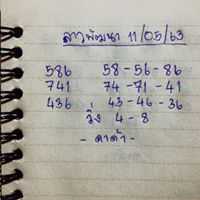 ลาวพัฒนา 11/05/63
586 58-56-86
741 74-71-41
436 43-46-36
วิ่ง 4-8
-ดาด้า-